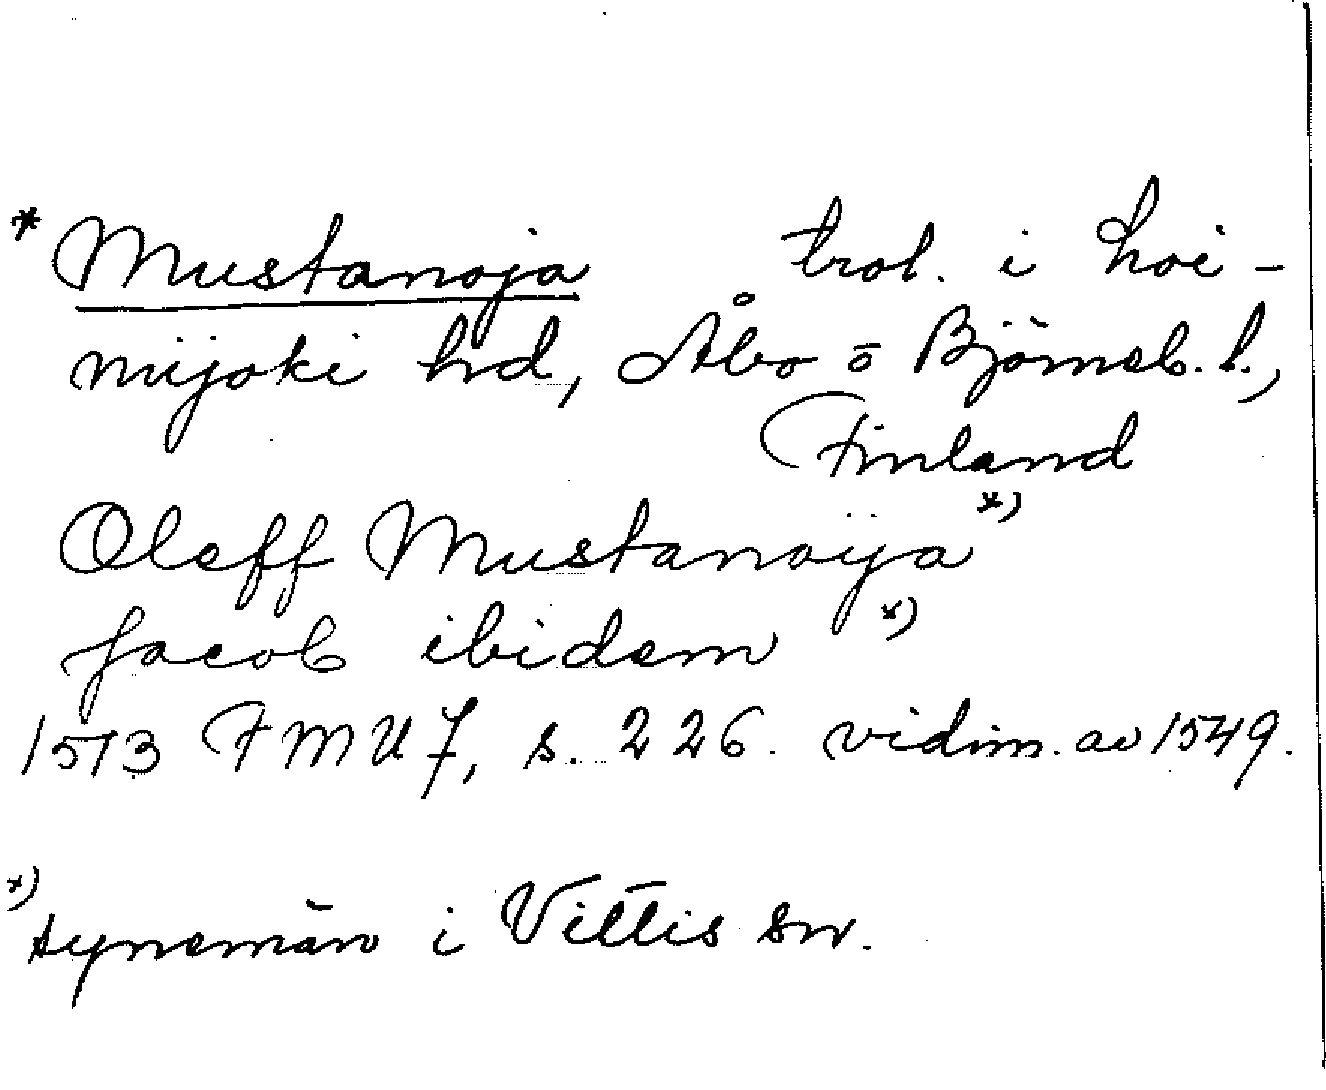 * Mustanoja trol. i Loi-
mijoki hd, Åbo o Björneb. l.,
Finland
Oleff Mustanoÿa *)
Jacob ibidem *)
1513 FMU 7, s. 226. vidim. av 1549.
*) synemän i Vittis sn.